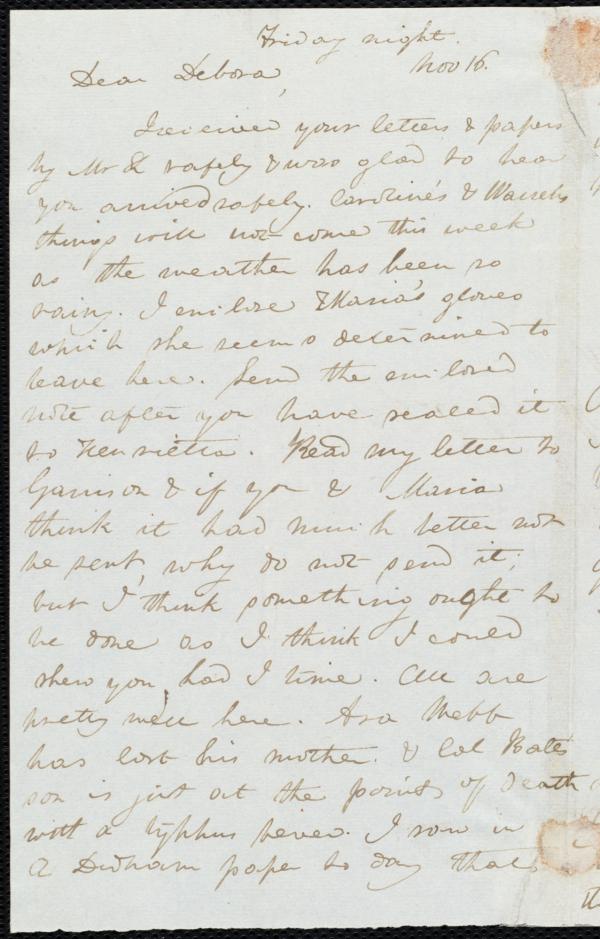 Friday night.
Nov 16.
Dear Debora,
I received your letters & papers
by Mr K safely & was glad to hear
you arrived safely. Caroline's &
things will not come this week
as the weather has been so
rainy. I enclose Maria's gloves
which she seems determined to
leave here. Send the enclosed
note after you have sealed it
to Henrietta. Read my letter to
Garrison & if you & Maria
think it had much better not
be sent, why do not send it;
but I think something ought to
be done as I think I could
shew you, had I time. All are
pretty well here. Asa Webb
has lost his mother. & Col Bates
son is just at the point of death
with a typhus fever. I saw in
a Dedham paper to day that